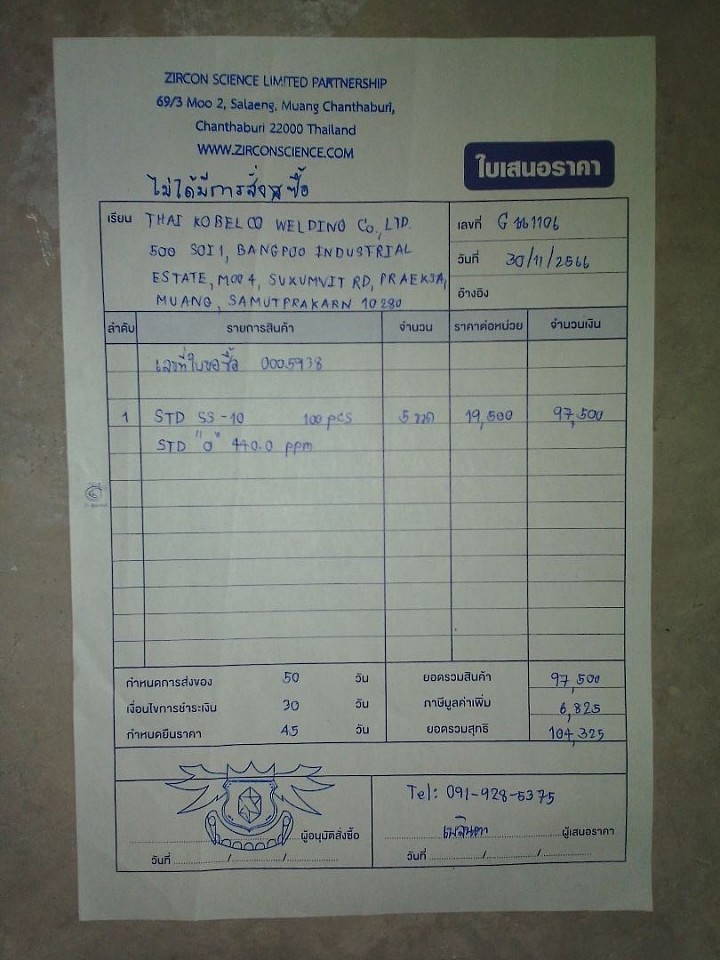 ZIRCON SCIENCE LIMITED PARTNERSHIP
69/3 Moo 2, Salaeng, Muang Chanthaburi,
Chanthaburi 22000 Thailand
WWW.ZIRCONSCIENCE.COM
ใบเสนอราคา
ไม่ได้มีการสั่งซื้อ
เรียน THAI KOBELCO WELDING Co., LTD.
500 SOI 1, BANGPOO INDUSTRIAL
ESTATE, MOO 4, SUKUMVIT RD, PRAEKSA,
MUANG, SAMUTPRAKARN 10280
เลขที่ G 661106
วันที่ 30/11/2566
อ้างอิง
ลำดับ รายการสินค้า จำนวน ราคาต่อหน่วย จำนวนเงิน
เลขที่ใบขอซื้อ 0005938
1 STD SS-10 100 pcs 5 ขวด 19,500 97,500
STD "O" 440.0 ppm
กำหนดการส่งของ 50 วัน ยอดรวมสินค้า 97,500
เงื่อนไขการชำระเงิน 30 วัน ภาษีมูลค่าเพิ่ม 6,825
กำหนดยืนราคา 45 วัน ยอดรวมสุทธิ 104,325
Tel: 091-928-5375
ผู้อนุมัติสั่งซื้อ
ผู้เสนอราคา
วันที่ / /
วันที่ / /